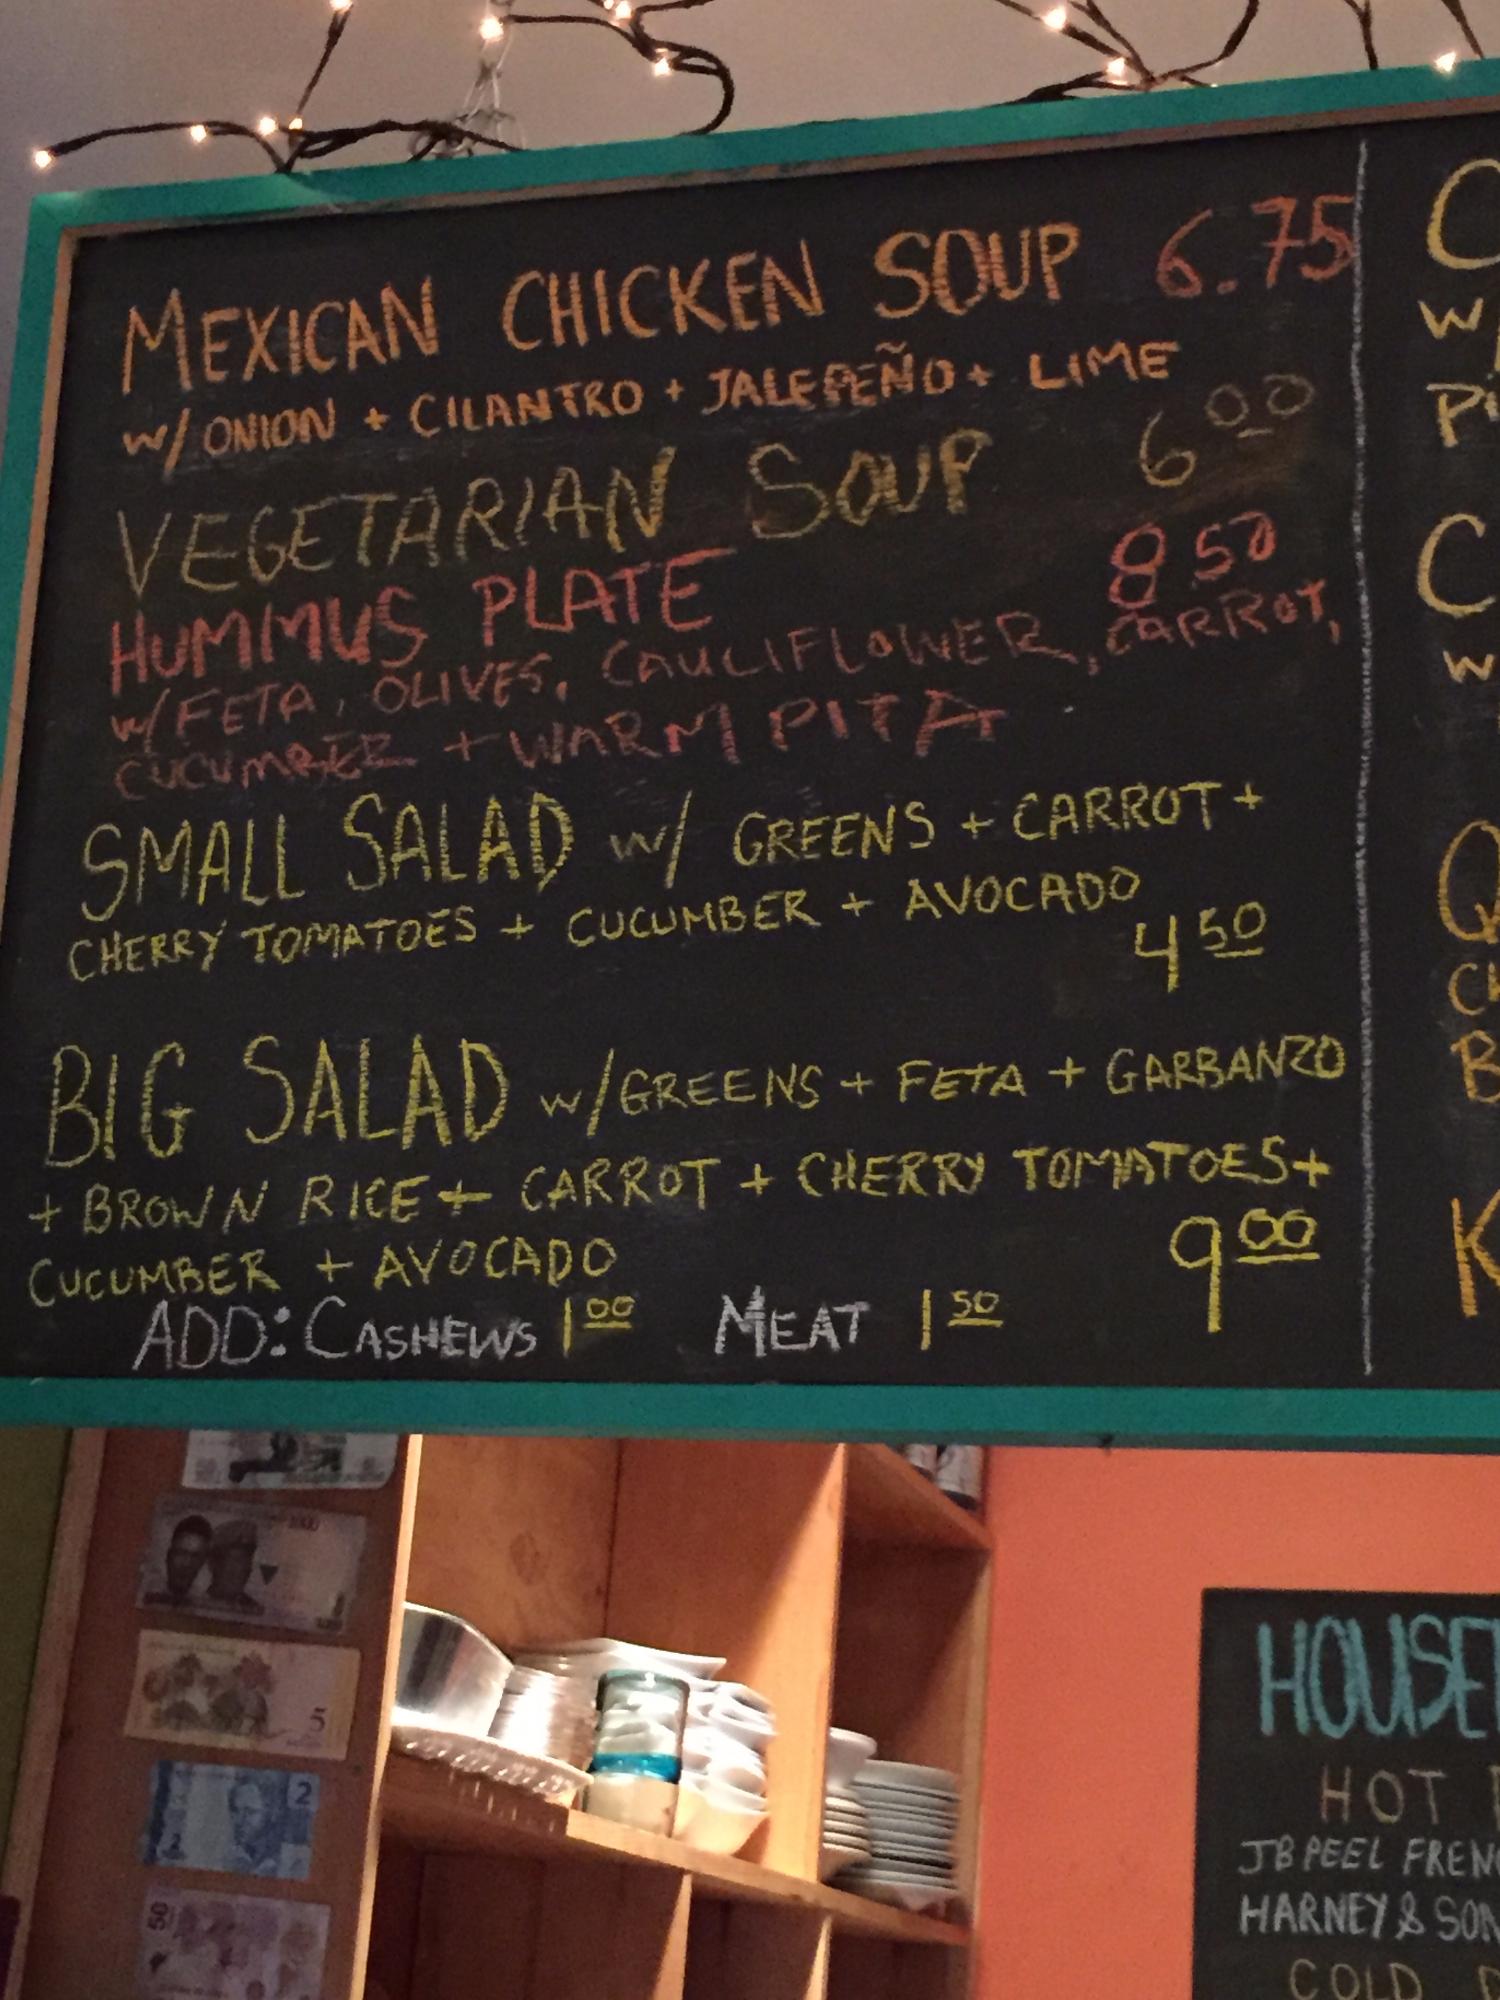 MEXICAN CHICKEN SOUP 6.75
W/ ONION + CILANTRO + JALEPEÑO + LIME
VEGETARIAN SOUP 6 00
HUMMUS PLATE 8.50
W/ FETA, OLIVES, CAULIFLOWER, CARROT,
CUCUMBER + WARM PITA
SMALL SALAD W/ GREENS + CARROT +
CHERRY TOMATOES + CUCUMBER + AVOCADO
4 50
BIG SALAD W/ GREENS + FETA + GARBANZO
+ BROWN RICE + CARROT + CHERRY TOMATOES +
CUCUMBER + AVOCADO 9 00
ADD: CASHEWS 1 00 MEAT 1 50
C
W
Pi
C
W
B
K
5
2
2
50
HOUSE
HOT
JB PEEL FREN
HARNEY & SON
COLD